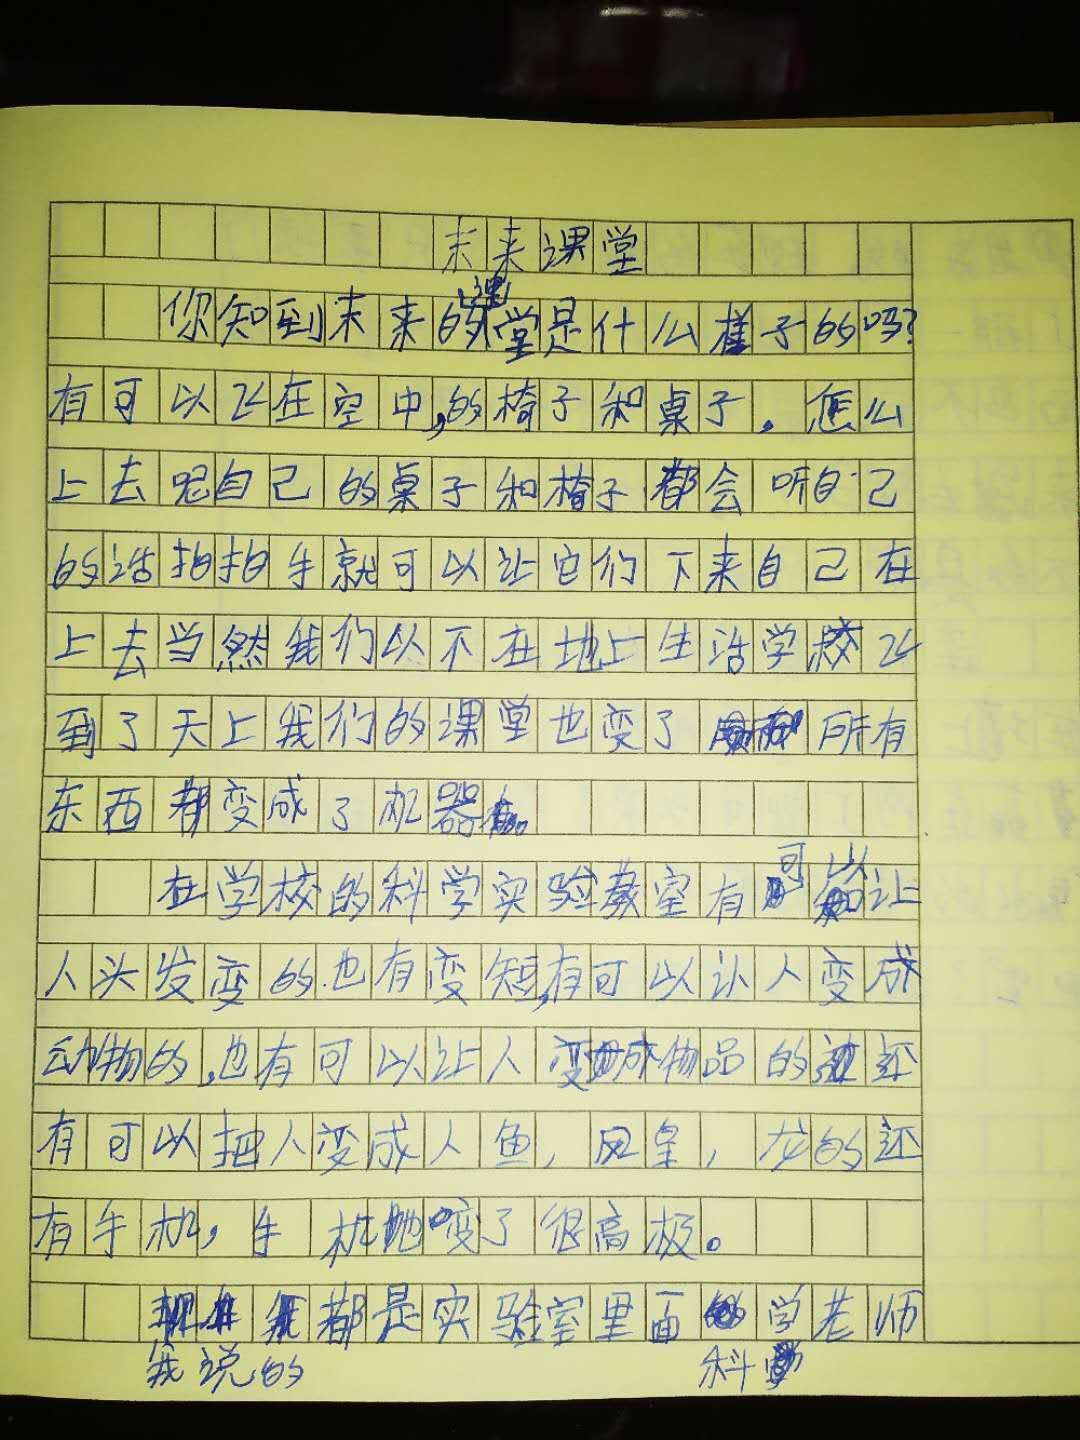 未来课堂
你知到未来的课堂是什么样子的吗?
有可以飞在空中,的椅子和桌子。怎么
上去呢自己的桌子和椅子都会听自己
的话拍拍手就可以让它们下来自己在
上去当然我们以不在地上生活学校飞
到了天上我们的课堂也变了所有
东西都变成了机器
在学校的科学实验教室有可以让
人头发变的也有变短,有可以认人变成
动物的,也有可以让人变成物品的还
有可以把人变成人鱼,凤皇,龙的还
有手机,手机也变了很高极。
我说的都是实验室里面科学老师